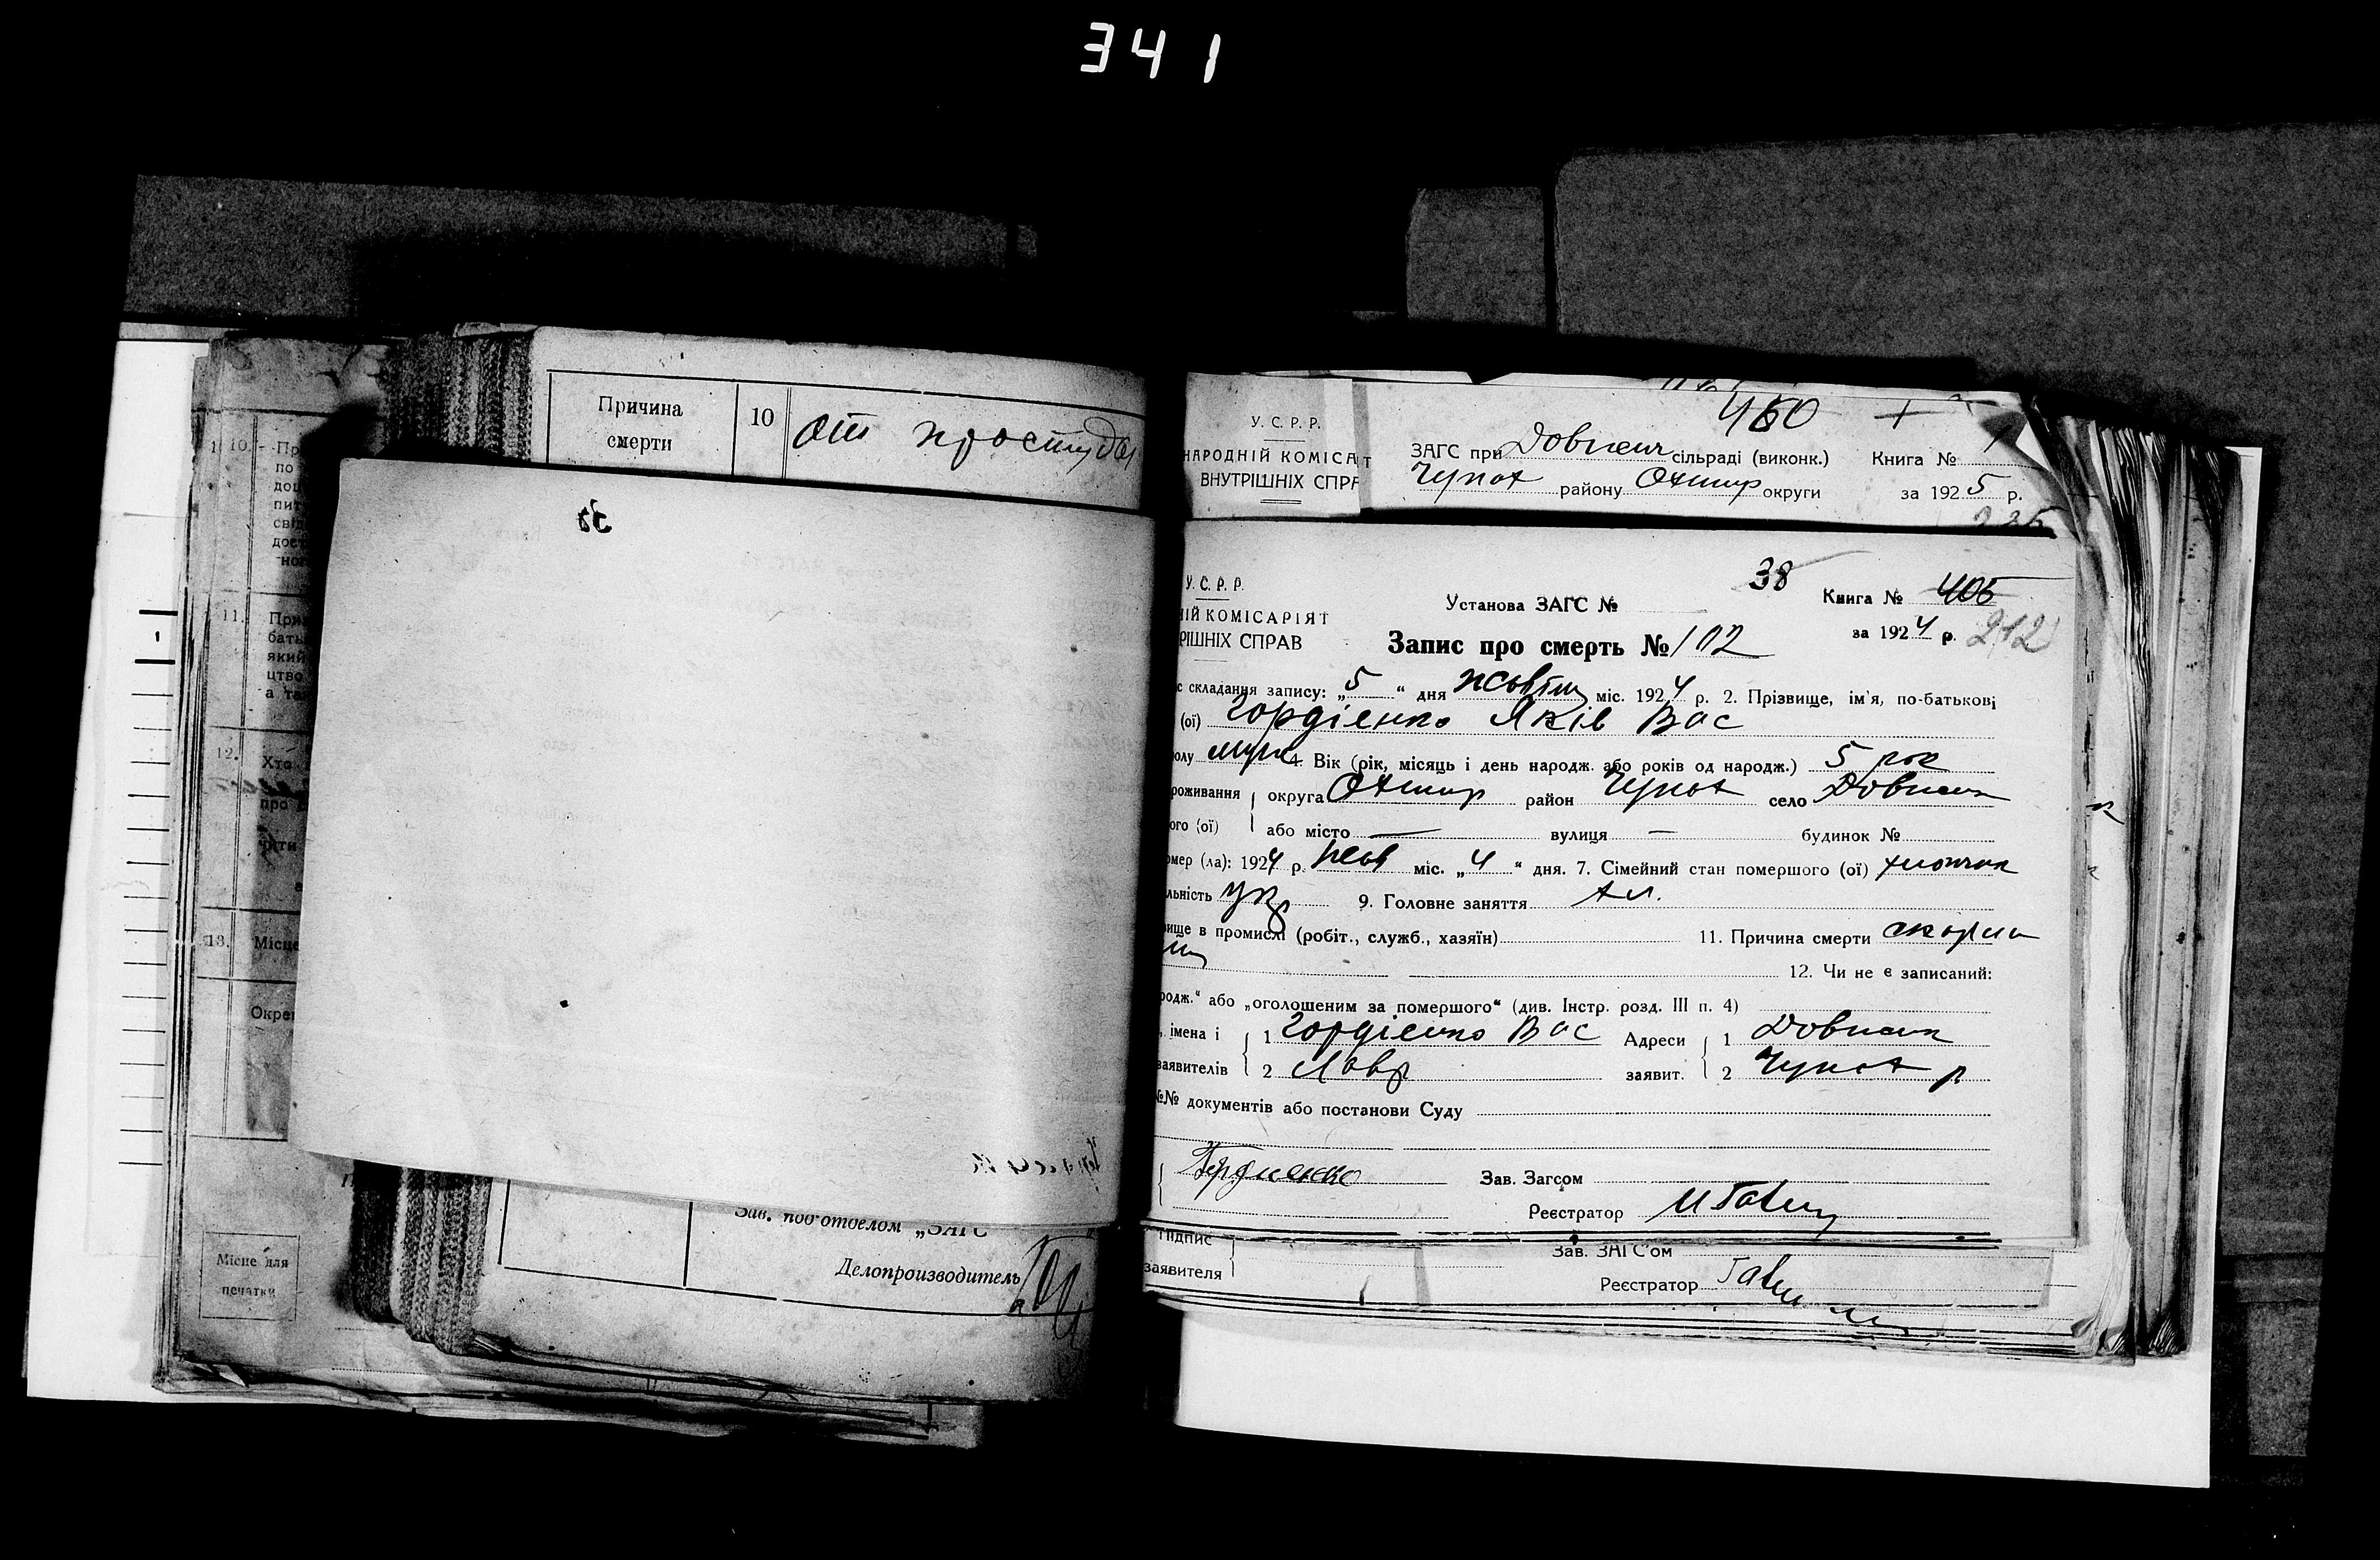 341
Причина
смерти
10
От простуды
10.
11.
12.
Хто
13.
Місце
Зав. под-отделом „ЗАГС
Делопроизводитель
Місце для
печатки
У. С. Р. Р.
НАРОДНІЙ КОМІСАТ
ВНУТРІШНІХ СПРА
460
ЗАГС при сільраді (виконк.) Книга № 1
Чупах району Охтир округи за 1925 р.
У. С. Р. Р.
ІЙ КОМІСАРІЯТ
РІШНІХ СПРАВ
38
Установа ЗАГС № Книга № 405
за 1924 р. 212
Запис про смерть № 102
с складання запису: „5“ дня жовтня міс. 1924 р. 2. Прізвище, ім'я, по-батькові
(ої) Гордієнко Яків Вас
олу муж 4. Вік (рік, місяць і день народж. або років од народж.) 5 рок
роживання округа Охтир район Чупах село
ого (ої) або місто — вулиця — будинок №
омер (ла): 1924 р. жовт міс. „4“ дня. 7. Сімейний стан помершого (ої) хлопчик
льність укр 9. Головне заняття
ище в промислі (робіт., служб., хазяїн) 11. Причина смерти скарла
ти
12. Чи не є записаний:
родж.“ або „оголошеним за помершого“ (див. Інстр. розд. III п. 4)
, імена і 1 Гордієнко Вас Адреси 1
заявителів 2 Лавр заявит. 2 Чупах р
№№ документів або постанови Суду
Гордиенко Зав. Загсом
Реєстратор
Підпис
заявителя
Зав. ЗАГС'ом
Реєстратор